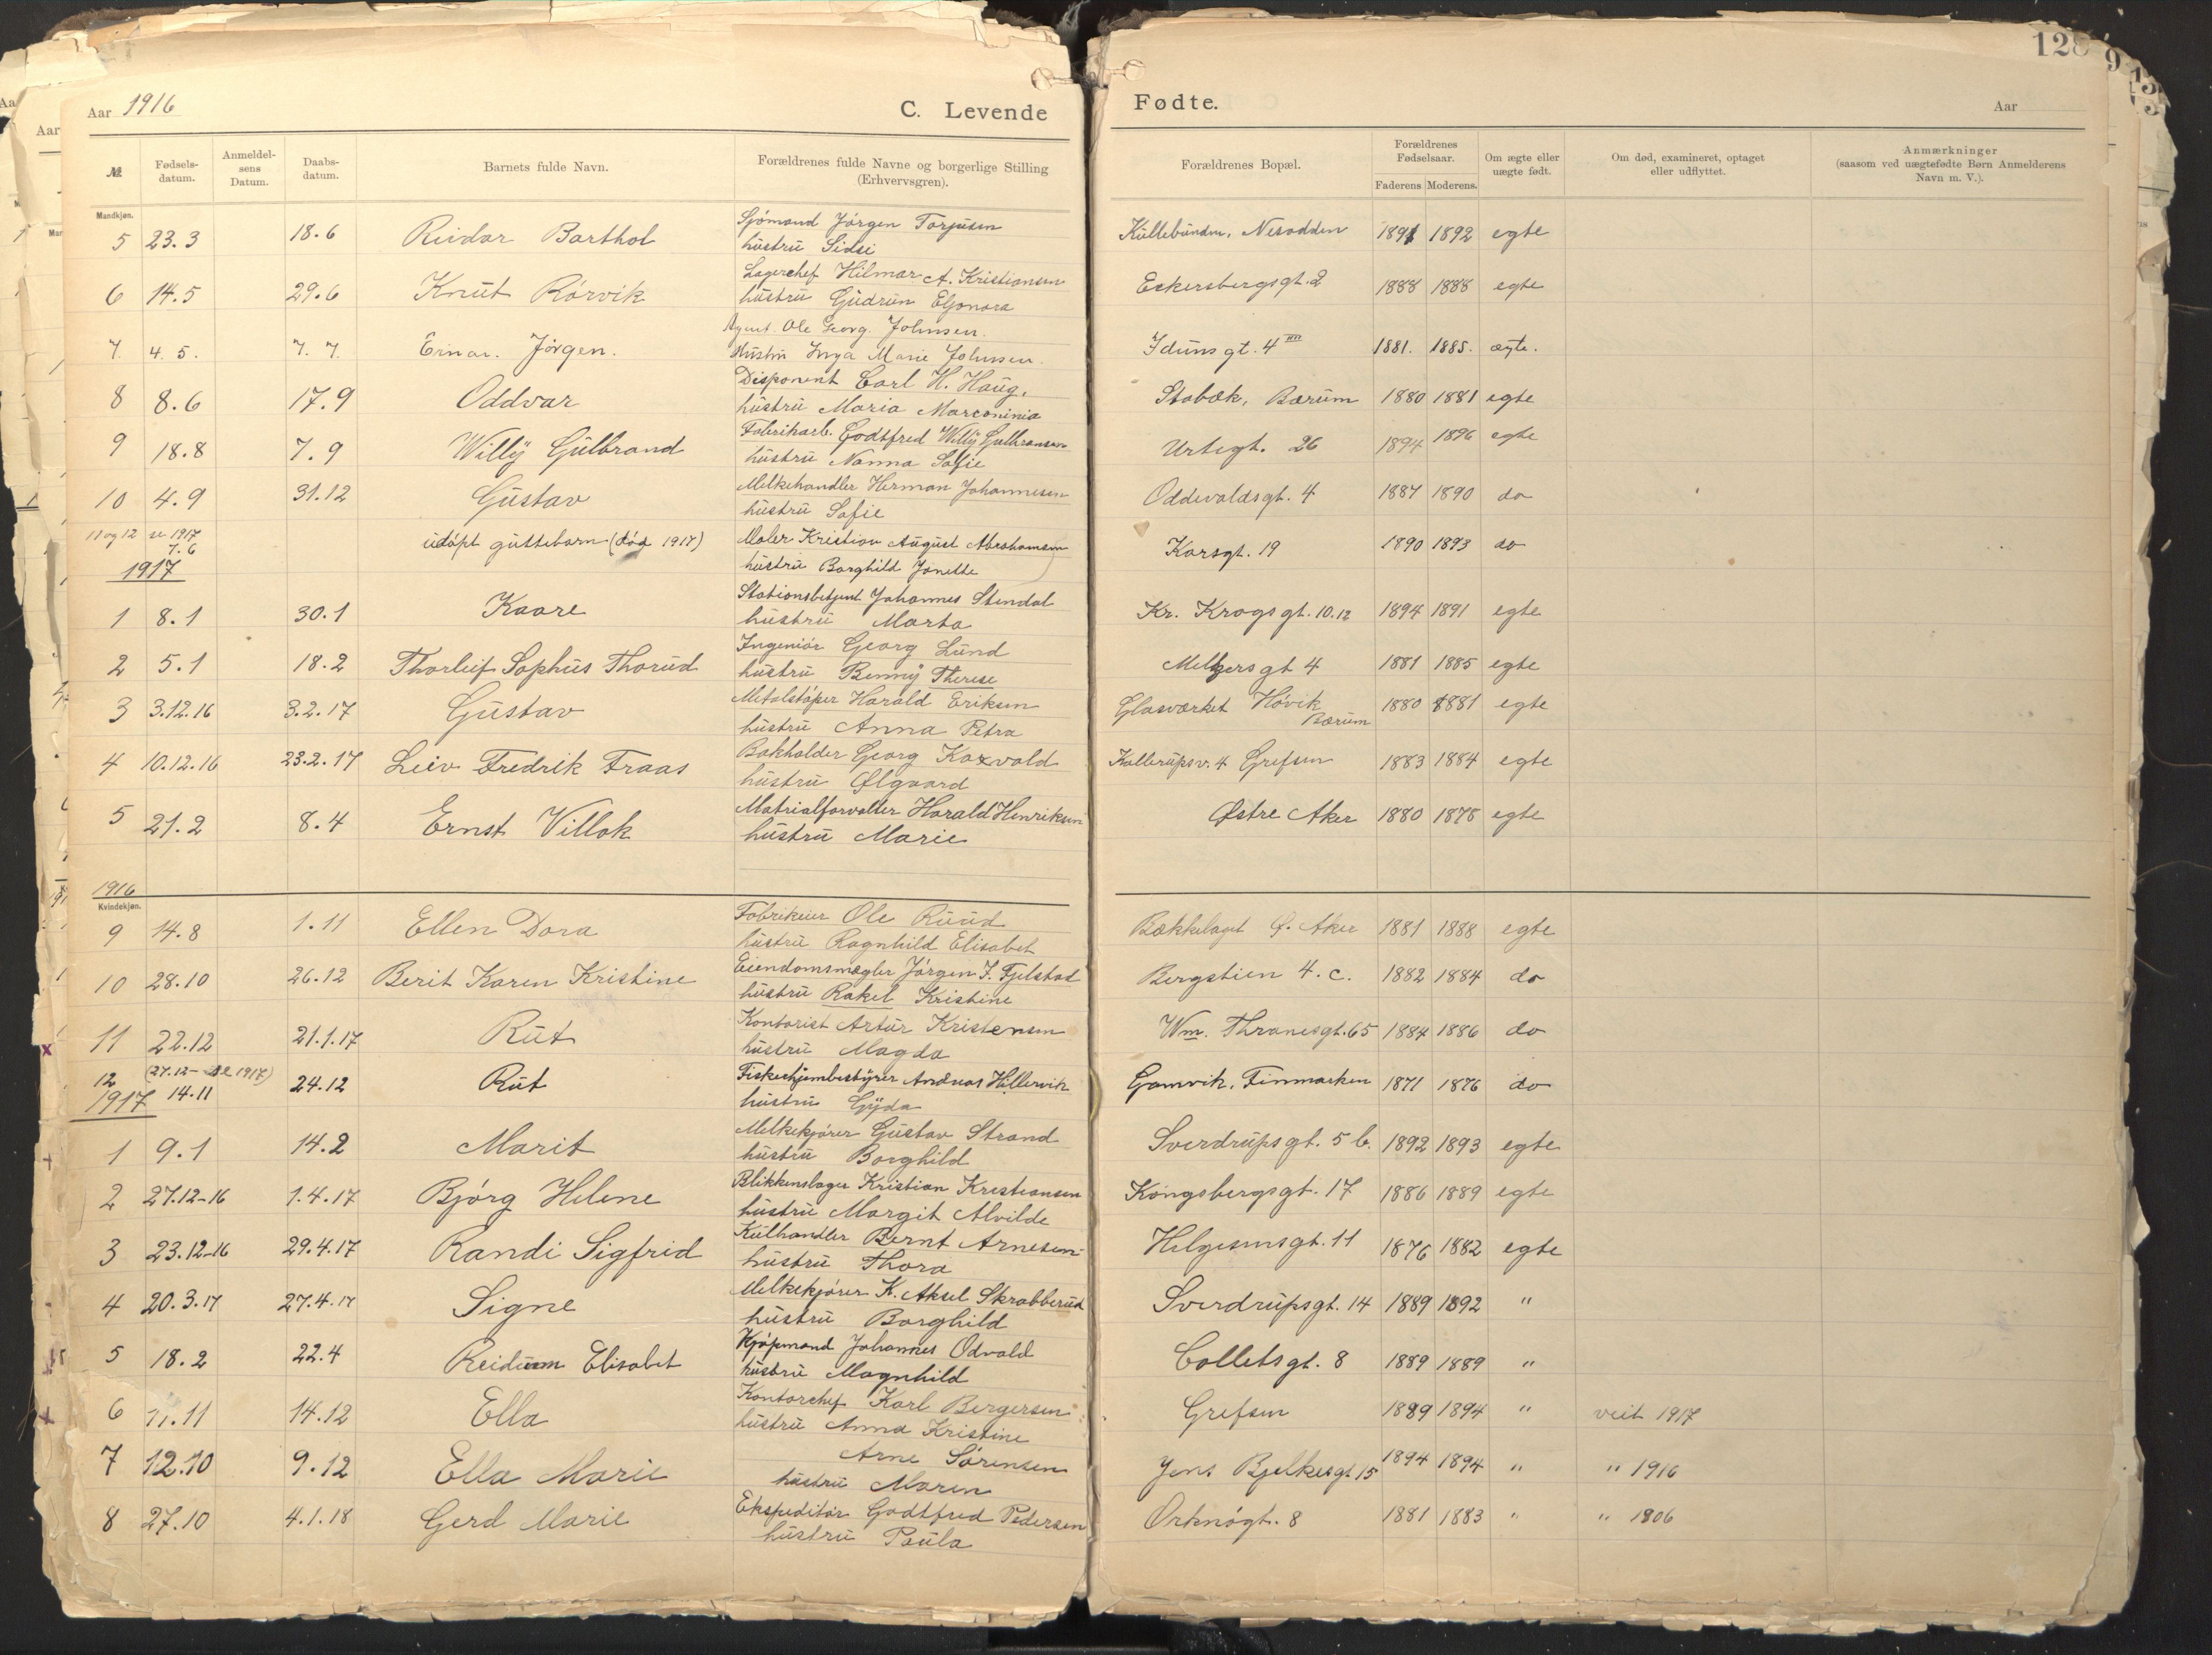 Aar 1916
C. Levende
Fødte.
Aar
128
№
Fødsels-datum.
Anmeldel-sens Datum.
Daabs-datum.
Barnets fulde Navn.
Forældrenes fulde Navne og borgerlige Stilling
(Erhvervsgren).
Forældrenes Bopæl.
Forældrenes Fødselsaar.
Faderens Moderens.
Om ægte eller uægte født.
Om død, examineret, optaget eller udflyttet.
Anmærkninger
(saasom ved uægtefødte Børn Anmelderens Navn m. V.).
Mandkjøn.
5 23.3 18.6 Reidar Barthol Sjømand Jørgen Torjusen 1891 1892 egte
hustru Sidsi
Nesodden
6 14.5 29.6 Knut Rørvik Lagerchef Hilmar A. Kristiansen Eckersbergsgt. 2 1888 1888 egte
hustru Gudrun Elionora
7. 4. 5. 7. 7. Einar. Jørgen. Agent. Ole Georg. Johnsen. Idunsgt. 4 III 1881. 1885. ægte.
Hustru Inga Marie Johnsen.
8 8.6 17.9 Oddvar Disponent Carl H. Haug. Stabæk, Bærum 1880 1881 egte
hustru Maria Marconinia
9 18.8 7.9 Willy Gulbrand Fabrikarb. Godtfred Willy Gulbransen Urtegt. 26 1894 1896 egte
hustru Nanna Sofie
10 4.9 31.12 Gustav Melkehandler Herman Johannesen Oddevaldsgt. 4 1887 1890 do
hustru Sofie
11 og 12 se 1917
7.6 udøpt guttebarn (død 1917) Maler Kristian August Abrahamsen Korsgt. 19 1890 1893 do
hustru Borghild Janette
1917
1 8.1 30.1 Kaare Stationsbetjent Johannes Stendal Kr. Krogsgt. 10.12 1894 1891 egte
hustru Marta
2 5.1 18.2 Thorleif Sophus Thorud Ingeniør Georg Lund Meltzersgt 4 1881 1885 egte
hustru Benny Therese
3 3.12.16 3.2.17 Gustav Metalstøper Harald Eriksen Glasværket Høvik Bærum 1880 1881 egte
hustru Anna Petra
4 10.12.16 23.2.17 Leiv Fredrik Fraas Bokholder Georg Koxvold Kallerupsv. 4 Grefsen 1883 1884 egte
hustru Ølgaard
5 21.2 8.4 Ernst Villok Matrialforvalter Harald Henriksen Østre Aker 1880 1878 egte
hustru Marie
1916
Kvindekjøn.
9 14.8 1.11 Ellen Dora Fabrikeier Ole Ruud Bækkelaget Ø. Aker 1881 1888 egte
hustru Ragnhild Elisabet
10 28.10 26.12 Berit Karen Kristine Eiendomsmægler Jørgen J. Fjelstad Bergstien 4. c. 1882 1884 do
hustru Rakel Kristine
11 22.12 21.1.17 Rut Kontorist Artur Kristensen Wm. Thranesgt. 65 1884 1886 do
hustru Magda
(27.12 - se 1917)
12 14.11 24.12 Rut Fiskehjembestyrer Andreas Hillervik Gamvik, Finmarken 1871 1876 do
hustru Gyda
1917
1 9.1 14.2 Marit Melkekjører Gustav Strand Sverdrupsgt. 5 b. 1892 1893 egte
hustru Borghild
2 27.12-16 1.4.17 Bjørg Helene Blikkenslager Kristian Kristiansen Kongsbergsgt. 17 1886 1889 egte
hustru Margit Alvilde
3 23.12-16 29.4.17 Randi Sigfrid Kulhandler Bernt Arnesen Helgesensgt. 11 1876 1882 egte
hustru Thora
4 20.3.17 27.4.17 Signe Melkekjører K. Aksel Skrabberud Sverdrupsgt. 14 1889 1892 "
hustru Borghild
5 18.2 22.4 Reidunn Elisabet Kjøpmand Johannes Odvald Colletsgt. 8 1889 1889 "
hustru Magnhild
6 11.11 14.12 Ella Kontorchef Karl Bergersen Grefsen 1889 1894 " veit 1917
hustru Anna Kristine
7 12.10 9.12 Ella Marie Arne Sørensen Jens Bjelkesgt. 15 1894 1894 " " 1916
hustru Maren
8 27.10 4.1.18 Gerd Marie Ekspeditør Godtfred Pedersen Orknøgt. 8 1881 1883 " " 1906
hustru Paula